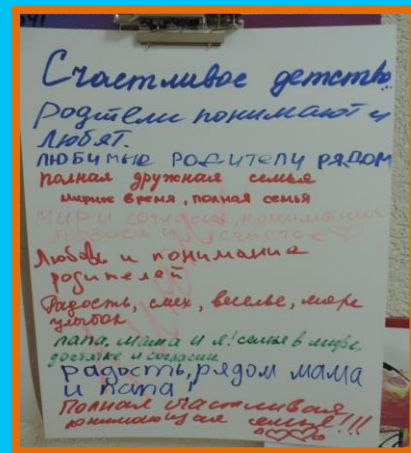 Счастливое детство...
Родители понимают и
любят.
ЛЮБИМЫЕ РОДИТЕЛИ РЯДОМ
полная дружная семья
мирное время, полная семья
МИР И согласие, понимание
любовь и счастье
Любовь и понимание
родителей
Радость, смех, веселье, море
улыбок
папа, мама и я! семья в мире,
достатке и согласии
радость, рядом мама
и папа!
Полная счастливая
понимающая семья!!!